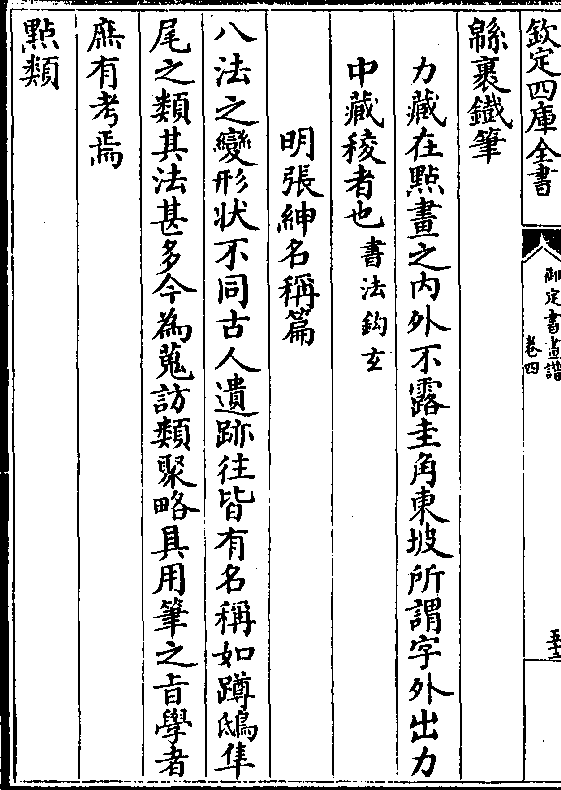 欽定四庫全書
御定書畫譜
卷四
緜裹鐵筆
力藏在點畫之内外不露圭角東坡所謂字外出力
中藏稜者也書法鈎玄
明張紳名稱篇
八法之變形状不同古人遺跡往皆有名稱如蹲鴟隼
尾之類其法甚多今為蒐訪類聚略具用筆之㫖學者
庶有考焉
點類